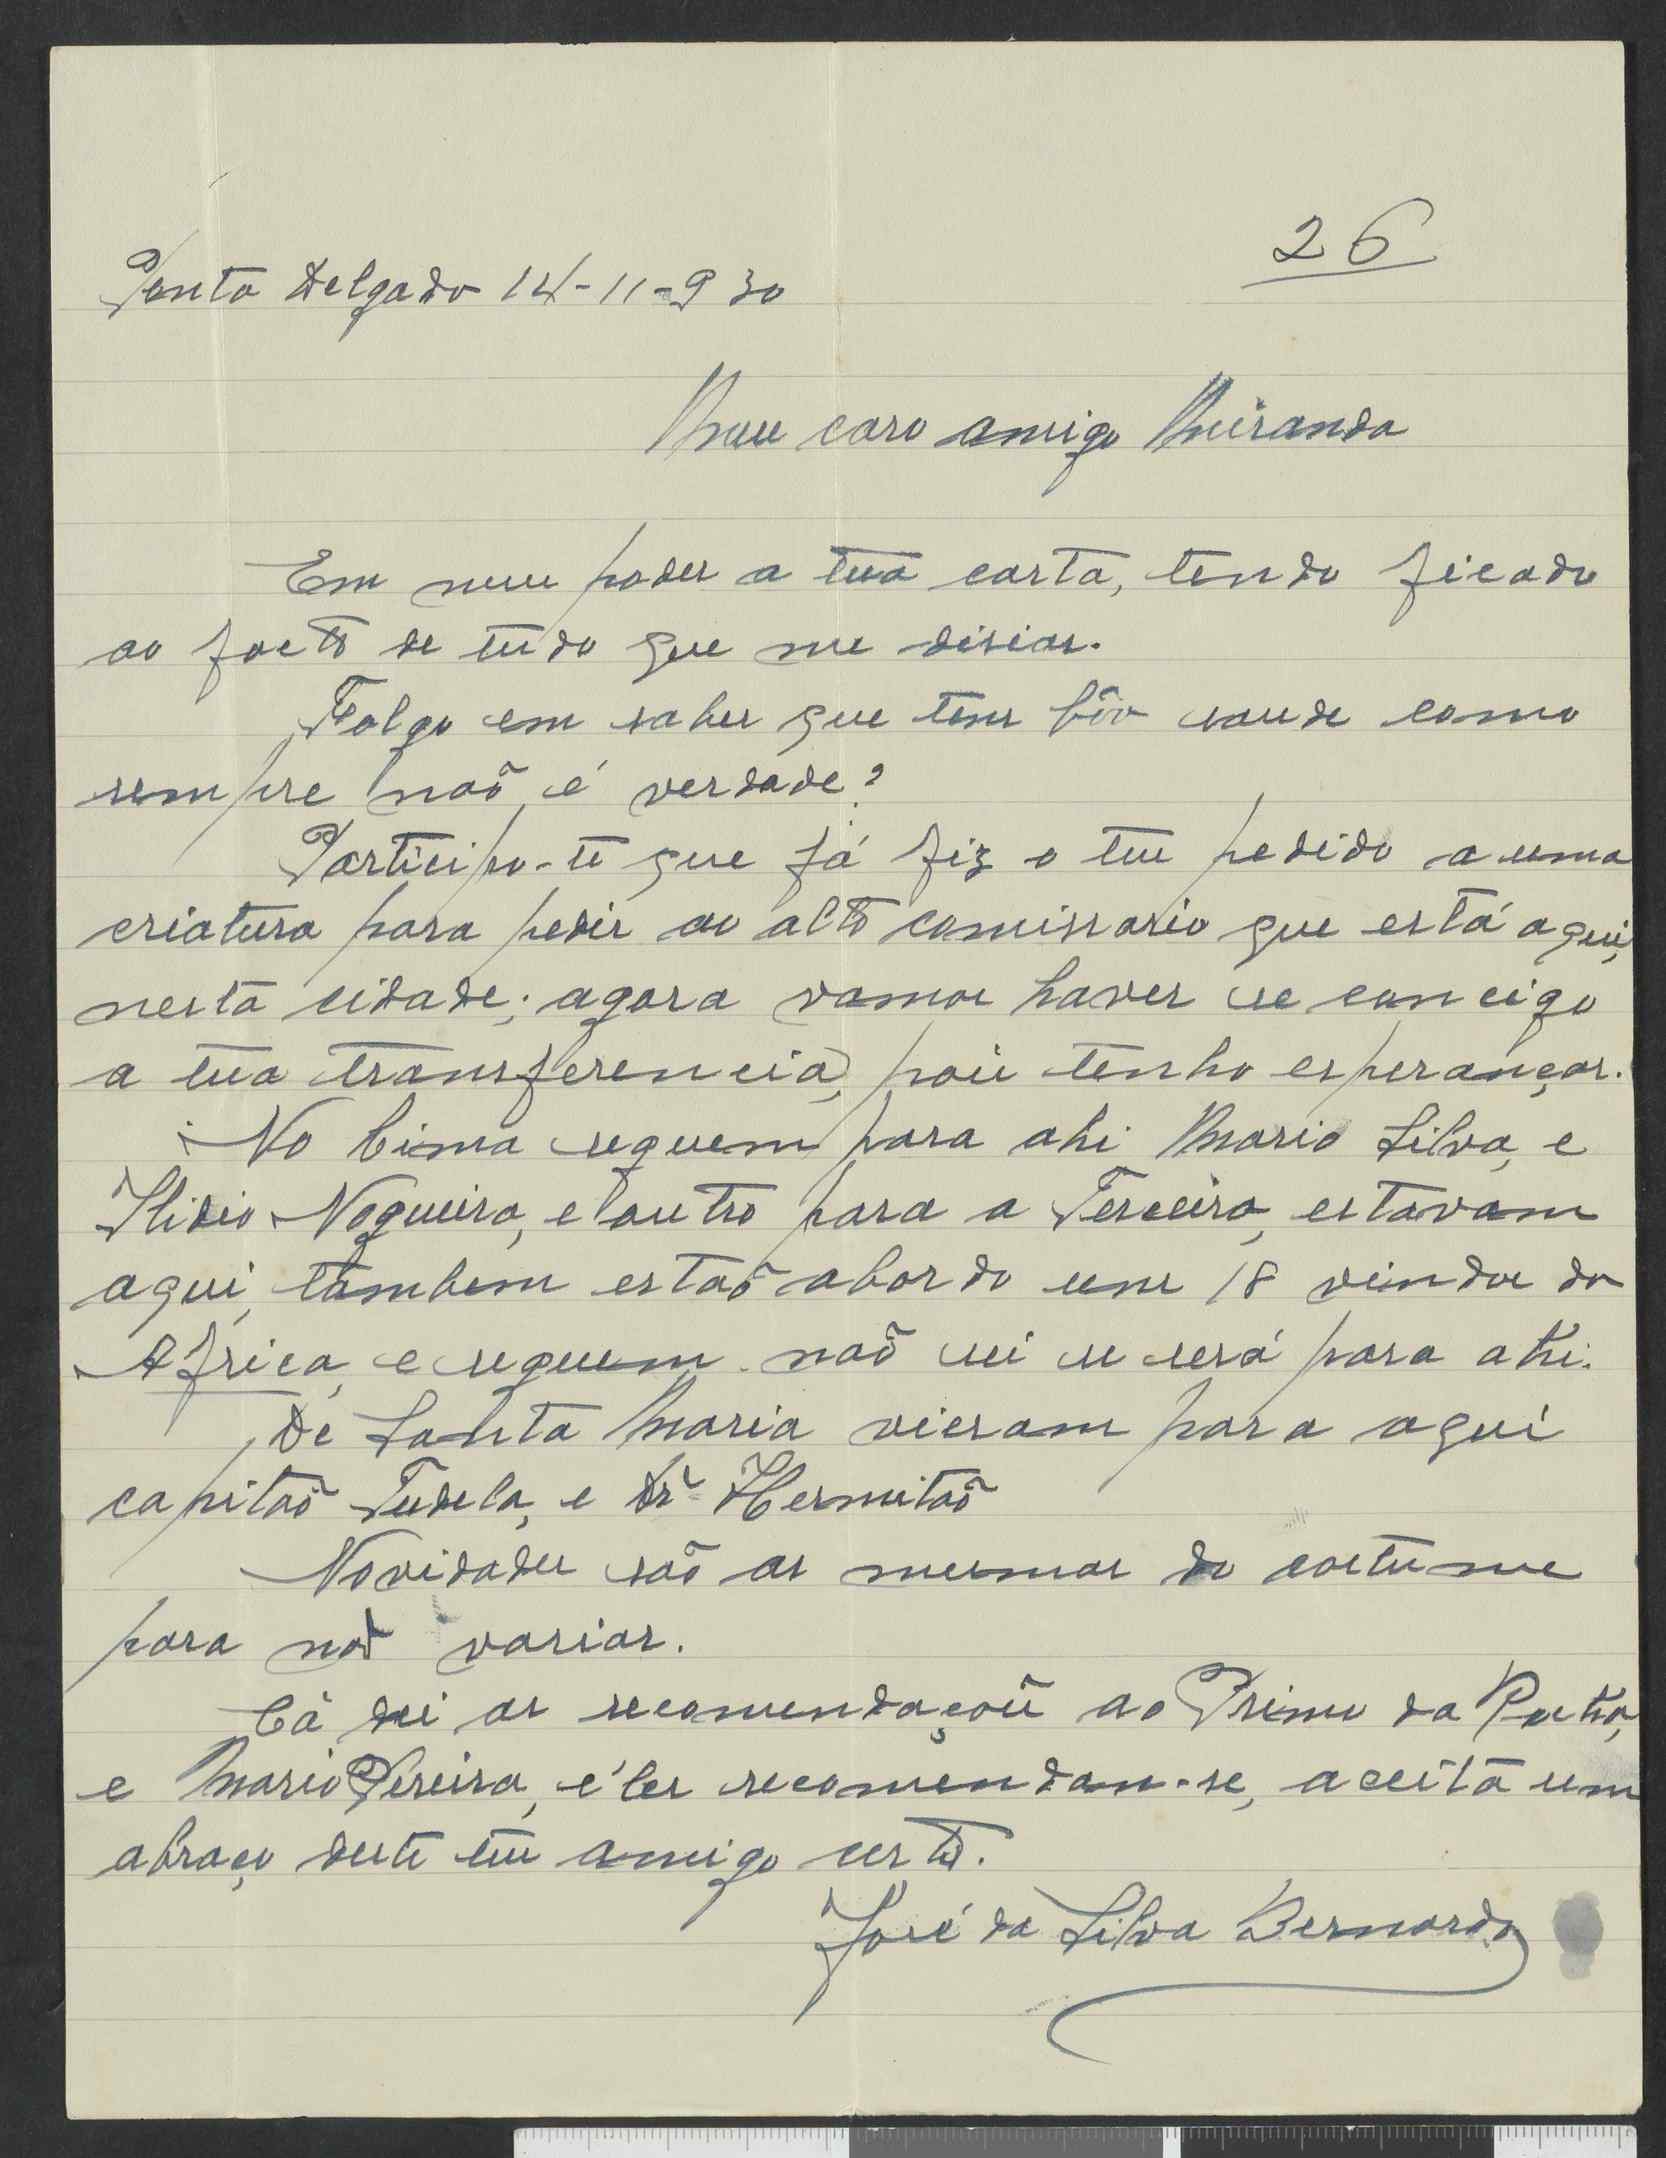 26
Ponta Delgada 14-11-930
Meu caro amigo Miranda
Em meu poder a tua carta, tendo ficado
ao facto de tudo que me disias.
Folgo em saber que tens bôa saude como
sempre naõ é verdade?
Participo-te que já fiz o teu pedido a uma
criatura para pedir ao alto comissario que está aqui,
nesta cidade; agora vamos haver se concigo
a tua transferencia, pois tenho esperanças.
No Cima seguem para ahi Mario Silva, e
Ilidio Nogueira, e outro para a Terceira, estavam
aqui, tambem estaõ abordo uns 18 vindos da
Africa, e seguem naõ sei se será para ahi.
De Santa Maria vieram para aqui
capitaõ Tudela, e Dr. Hermitaõ
Novidades saõ as mesmas do costume
para naõ variar.
Cá dei as recomendaçoẽs ao Primo da
e Mario Pereira, êles recomendan-se, aceita um
abraço deste teu amigo certo.
José da Silva Bernardo